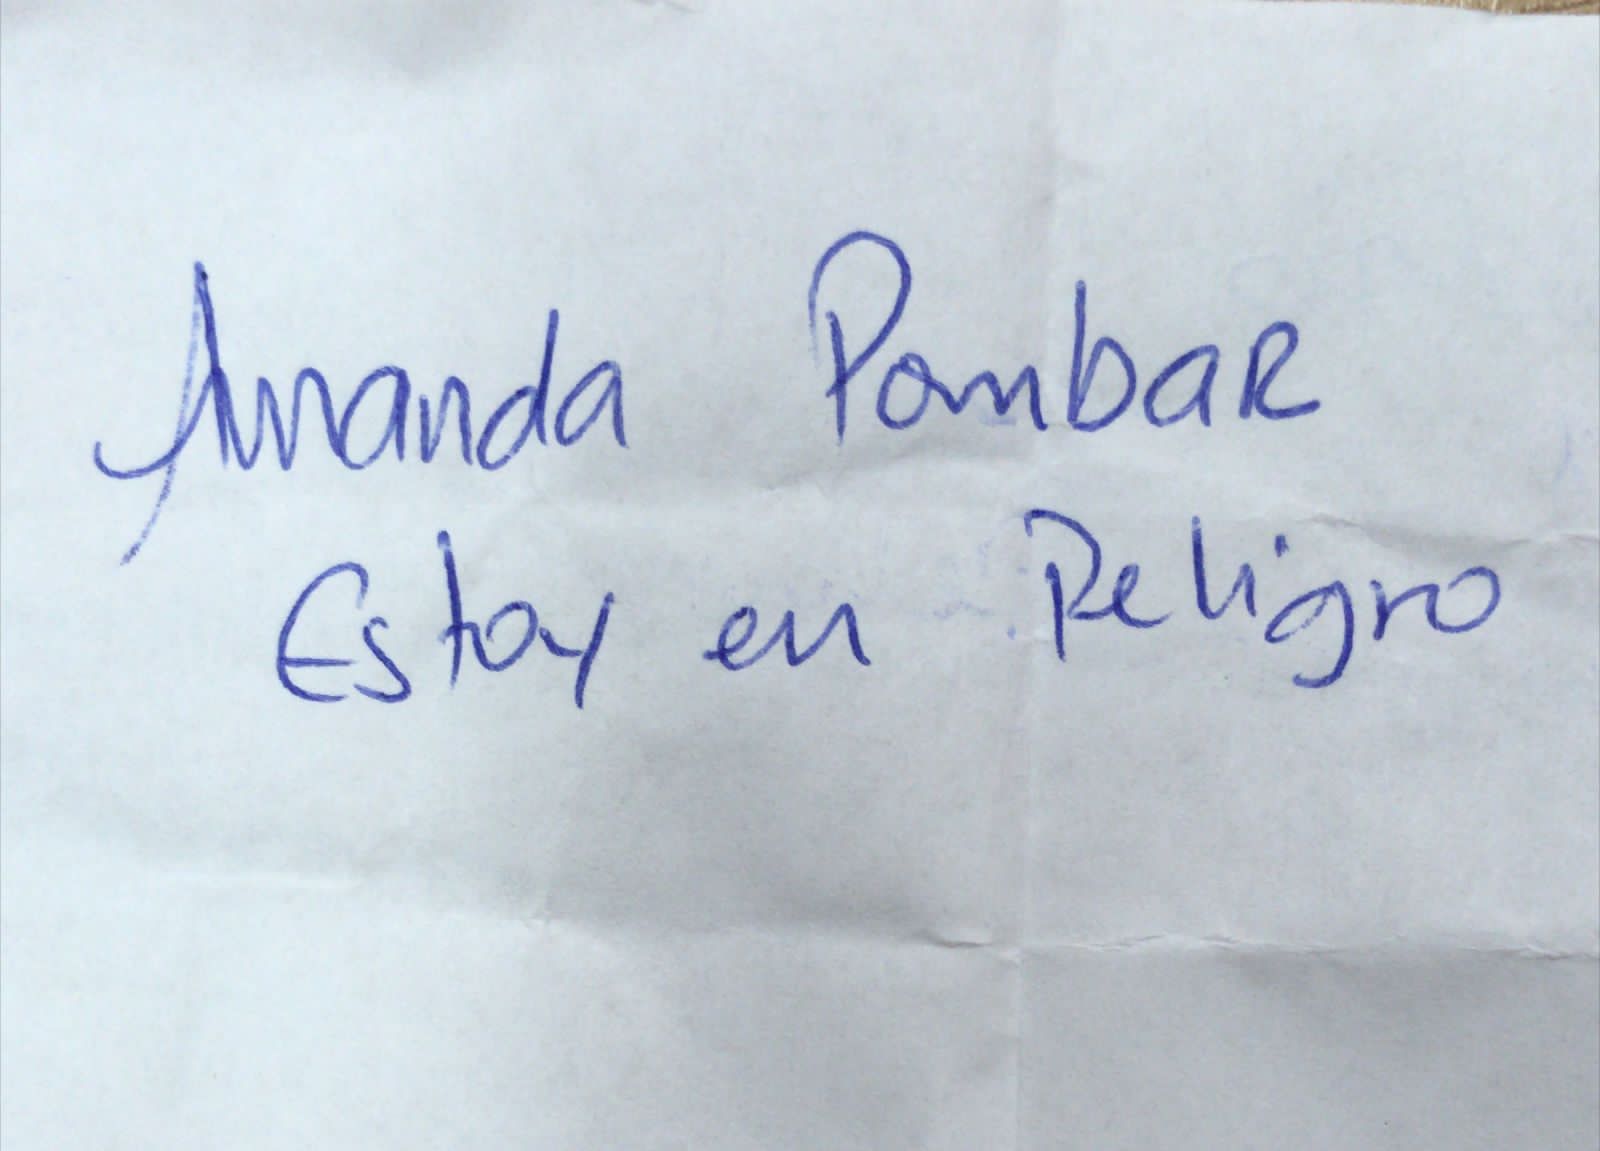 Amanda Pombar
Estoy en Peligro